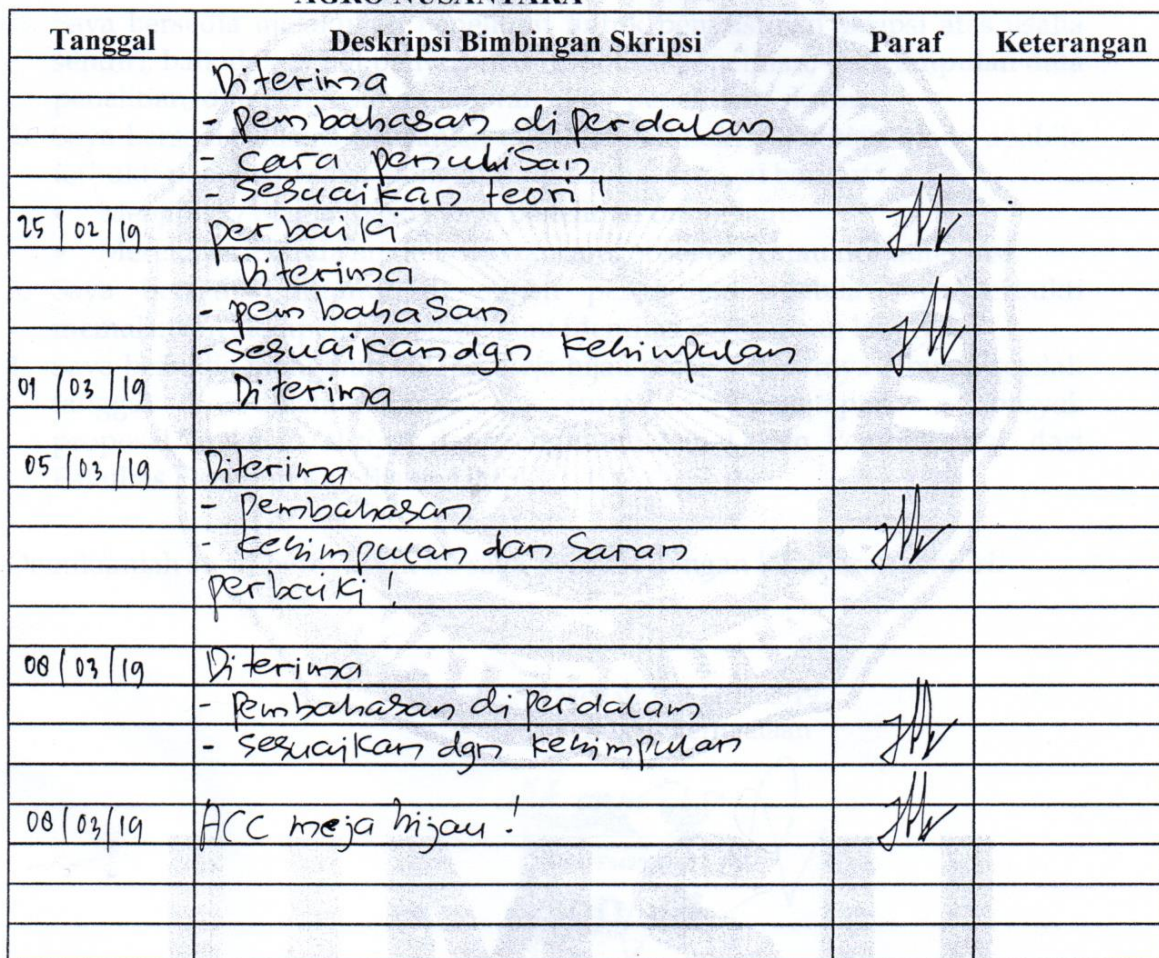 AGRO NUSANTARA
Tanggal Deskripsi Bimbingan Skripsi Paraf Keterangan
Diterima
- pembahasan diperdalam
- cara penulisan
- Sesuaikan teori !
25/02/19 perbaiki
Diterima
- pembahasan
- Sesuaikan dgn kesimpulan
01/03/19 Diterima
05/03/19 Diterima
- Pembahasan
- kesimpulan dan Saran
perbaiki !
08/03/19 Diterima
- Pembahasan diperdalam
- sesuaikan dgn kesimpulan
08/03/19 ACC meja hijau !